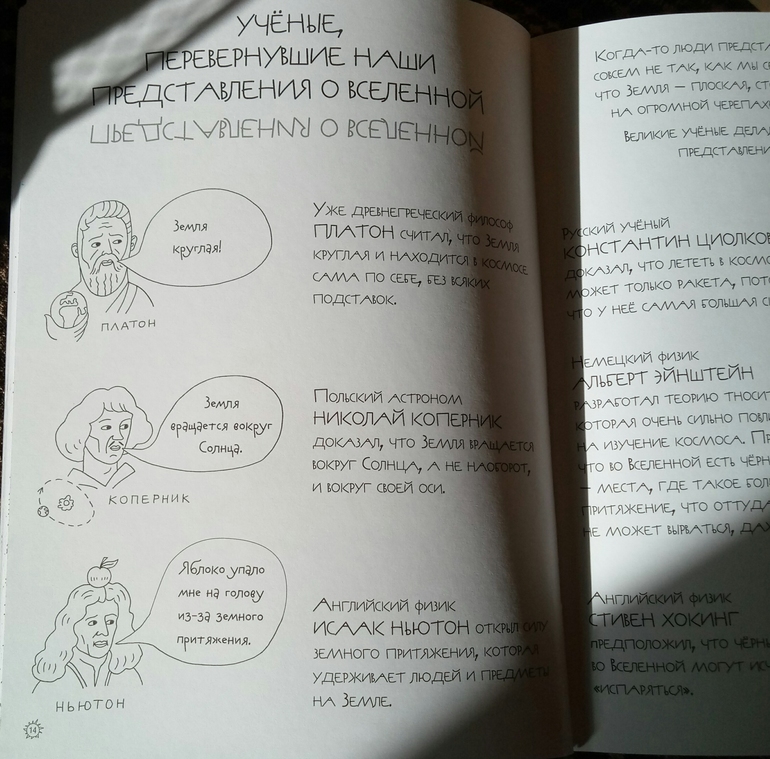 УЧЁНЫЕ,
ПЕРЕВЕРНУВШИЕ НАШИ
ПРЕДСТАВЛЕНИЯ О ВСЕЛЕННОЙ
Земля
круглая!
ПЛАТОН
Уже древнегреческий философ
ПЛАТОН считал, что Земля
круглая и находится в космосе
сама по себе, без всяких
подставок.
Земля
вращается вокруг
Солнца.
КОПЕРНИК
Польский астроном
НИКОЛАЙ КОПЕРНИК
доказал, что Земля вращается
вокруг Солнца, а не наоборот,
и вокруг своей оси.
Яблоко упало
мне на голову
из-за земного
притяжения.
НЬЮТОН
Английский физик
ИСААК НЬЮТОН открыл силу
земного притяжения, которая
удерживает людей и предметы
на Земле.
14
Когда-то люди
совсем не так, как мы
что Земля – плоская,
на огромной
Великие учёные
Русский учёный
КОНСТАНТИН
доказал, что лететь в
может только ракета,
что у неё самая большая
Немецкий физик
АЛЬБЕРТ ЭЙНШТЕЙН
разработал теорию
которая очень сильно
на изучение космоса.
что во Вселенной есть
– места, где такое
притяжение, что
не может вырваться,
Английский физик
СТИВЕН ХОКИНГ
предположил, что
во Вселенной могут
«испаряться».